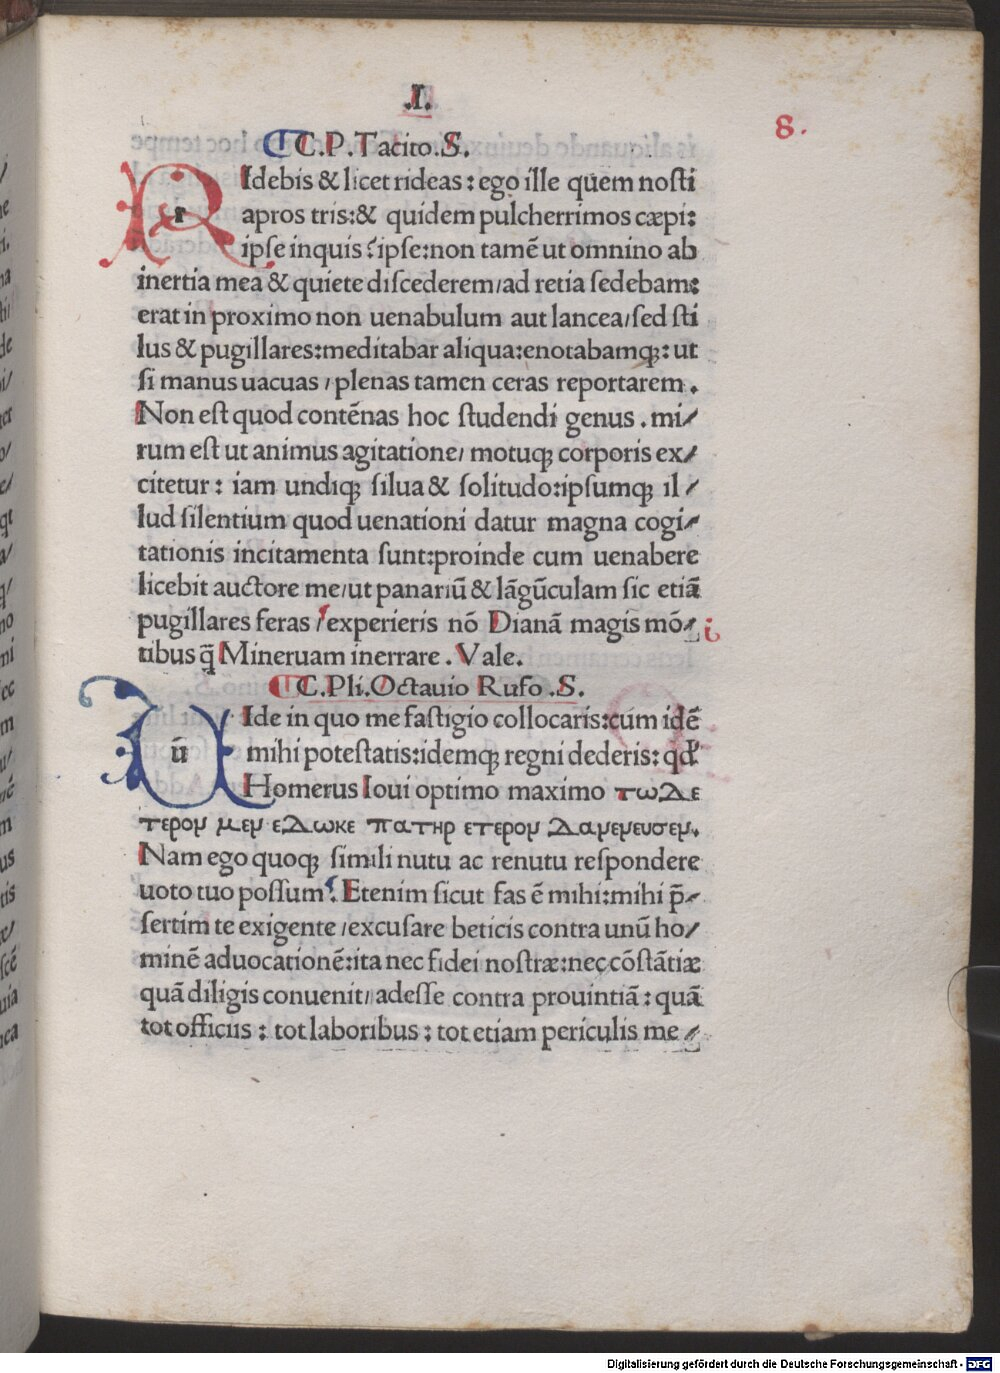 .I.
8.
C.P.Tacito.S.
RIdebis & licet rideas : ego ille quem nosti
apros tris:& quidem pulcherrimos cæpi:
ipſe inquis ? ipſe:non tamē ut omnino ab
inertia mea & quiete diſcederem/ad retia ſedebam:
erat in proximo non uenabulum aut lancea/ſed ſti
lus & pugillares:meditabar aliqua:enotabamqꝫ: ut
ſi manus uacuas / plenas tamen ceras reportarem .
Non eſt quod contēnas hoc ſtudendi genus . mi⸗
rum eſt ut animus agitatione/ motuqꝫ corporis ex⸗
citetur : iam undiqꝫ ſilua & ſolitudo:ipſumqꝫ il⸗
lud ſilentium quod uenationi datur magna cogi⸗
tationis incitamenta ſunt:proinde cum uenabere
licebit auctore me/ut panariū & lāgūculam ſic etiā
pugillares feras / experieris nō Dianā magis mō⸗
tibus q̄ Mineruam inerrare . Vale.
C.Pli.Octauio Rufo .S.
ūIde in quo me faſtigio collocaris:cum idē
mihi poteſtatis:idemqꝫ regni dederis: qd'
Homerus Ioui optimo maximo τωΔε
τερον μεν εΔωκε πατηρ ετερον Δανενευσεν.
Nam ego quoqꝫ ſimili nutu ac renutu reſpondere
uoto tuo poſſum. Etenim ſicut fas ē mihi:mihi p̄⸗
ſertim te exigente /excuſare beticis contra unū ho⸗
minē aduocationē:ita nec fidei noſtræ:nec cōſtātiæ
quā diligis conuenit/ adeſſe contra prouintiā : quā
tot officiis : tot laboribus : tot etiam periculis me⸗
Digitalisierung gefördert durch die Deutsche Forschungsgemeinschaft - DFG